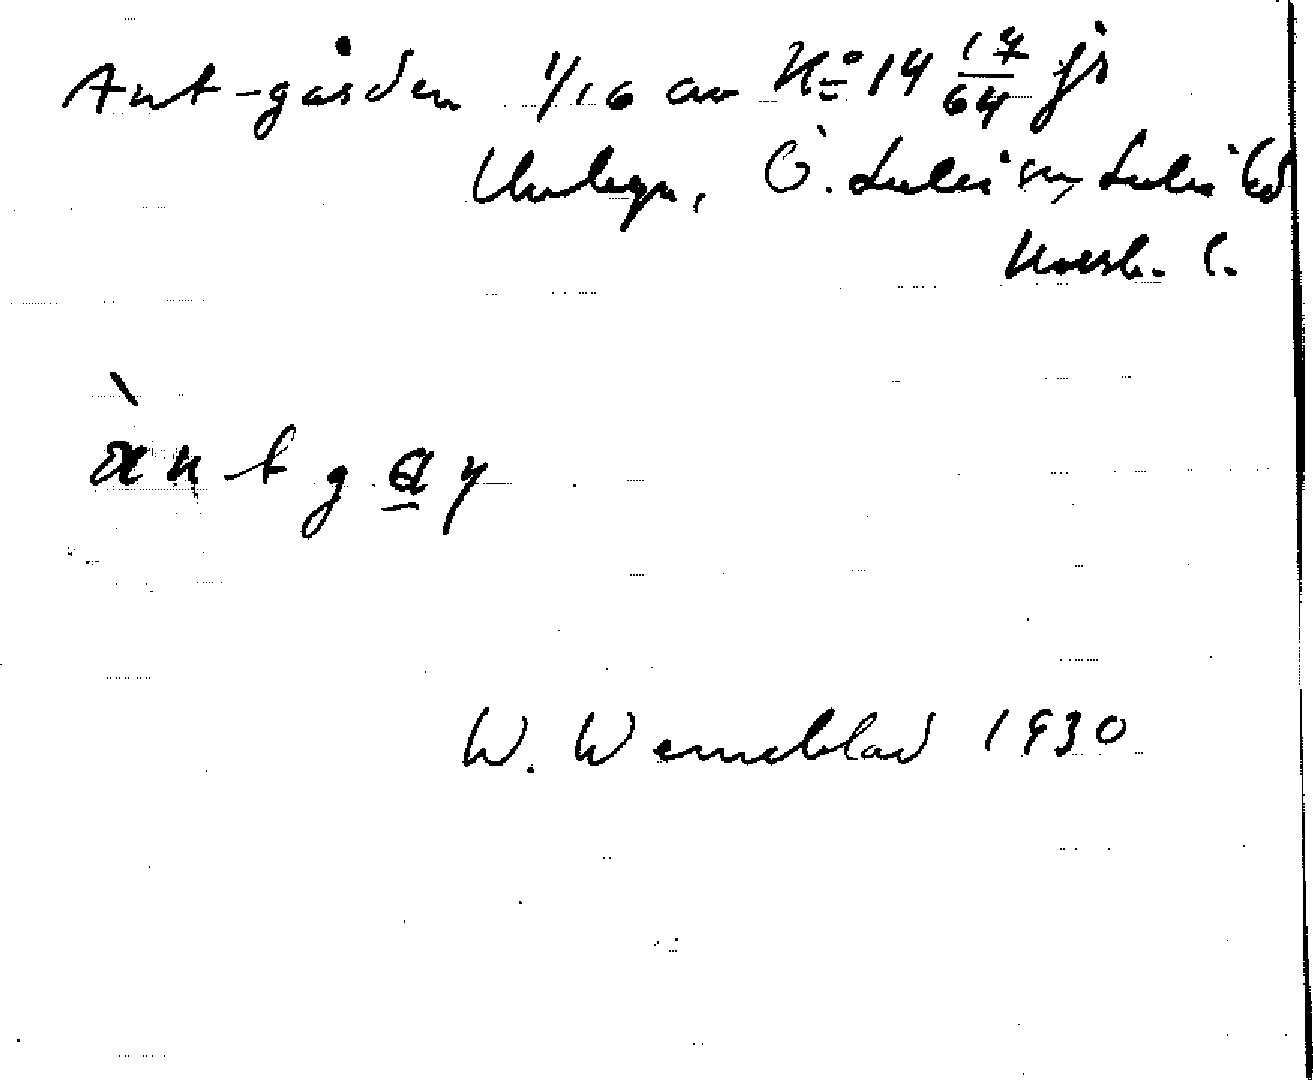 Ant-gården 1/16 av No 14 17/64 js
Unbyn, Ö. Luleå sn, Luleå td
Norrb. l.
àn t g a y
W. Wenneblad 1930